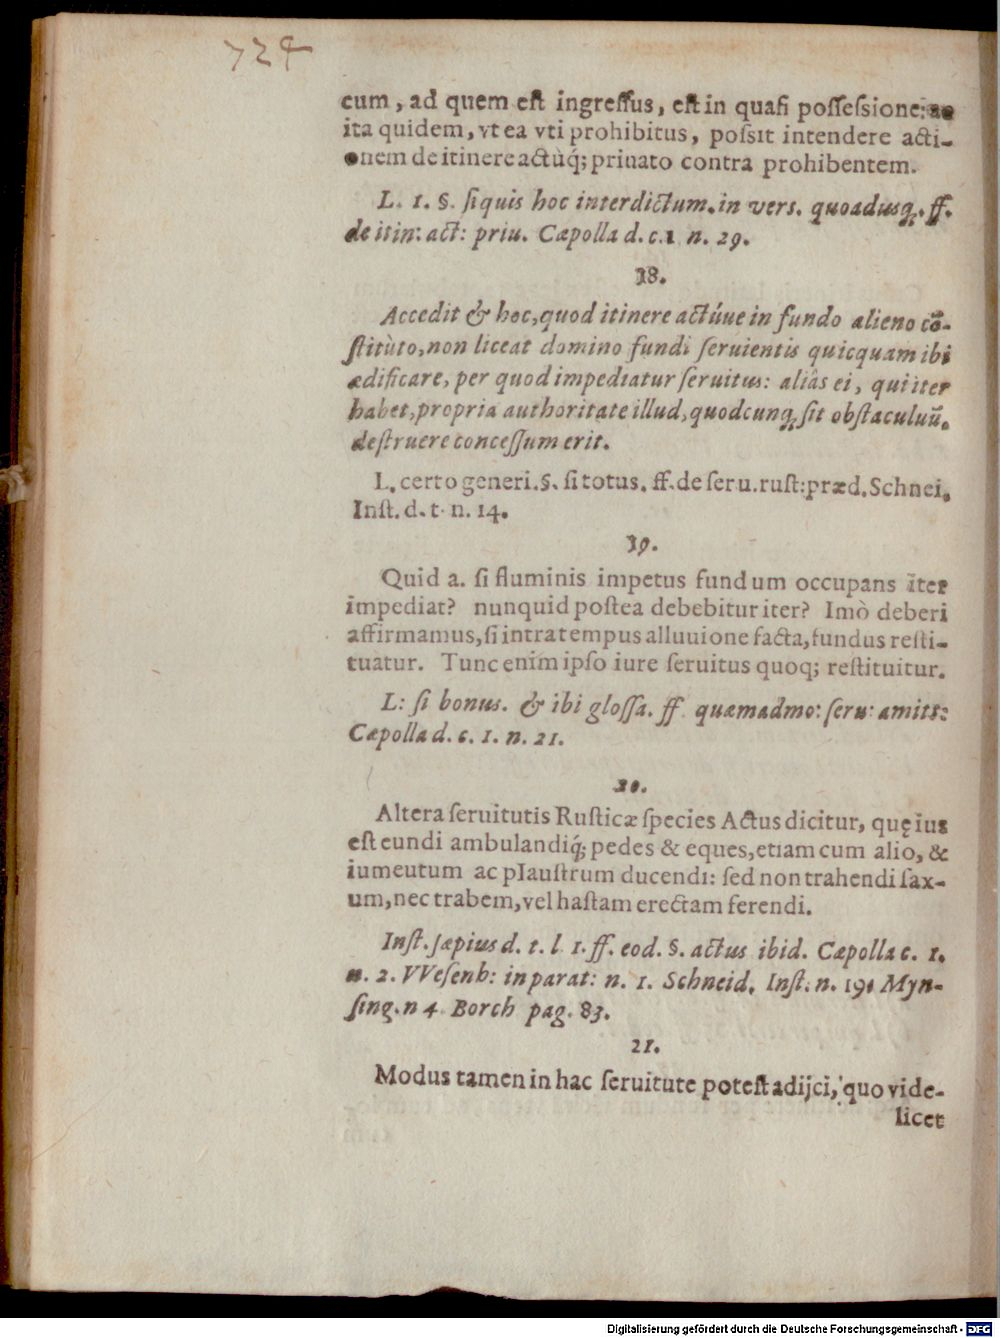 724
cum, ad quem est ingressus, est in quasi possessione: ac
ita quidem, vt ea vti prohibitus, possit intendere acti-
onem de itinere actùq́; priuato contra prohibentem.
L. 1. §. si quis hoc interdictum. in vers. quoadusq. ff.
de itin: act: priu. Cæpolla d. c. 1 n. 29.
18.
Accedit & hoc, quod itinere actúue in fundo alieno cō-
stitùto, non liceat domino fundi seruientis quicquam ibi
ædificare, per quod impediatur seruitus: aliâs ei, qui iter
habet, propria authoritate illud, quodcunq, sit obstaculuū,
destruere concessum erit.
L. certo generi. §. si totus. ff. de seru. rust: præd. Schnei.
Inst. d. t. n. 14.
19.
Quid a. si fluminis impetus fundum occupans iter
impediat? nunquid postea debebitur iter? Imò deberi
affirmamus, si intra tempus alluuione facta, fundus resti-
tuatur. Tunc enim ipso iure seruitus quoq; restituitur.
L: si bonus. & ibi glossa. ff. quæmadmo: seru: amitt:
Cæpolla d. c. 1. n. 21.
20.
Altera seruitutis Rusticæ species Actus dicitur, quę ius
est eundi ambulandiq́; pedes & eques, etiam cum alio, &
iumeutum ac plaustrum ducendi: sed non trahendi sax-
um, nec trabem, vel hastam erectam ferendi.
Inst. sæpius d. t. l. 1. ff. eod. §. actus ibid. Cæpolla c. 1.
n. 2. VVesenb: in parat: n. 1. Schneid. Inst. n. 19. Myn-
sing. n 4. Borch pag. 83.
21.
Modus tamen in hac seruitute potest adijci, quo vide-
licet
Digitalisierung gefördert durch die Deutsche Forschungsgemeinschaft - DFG